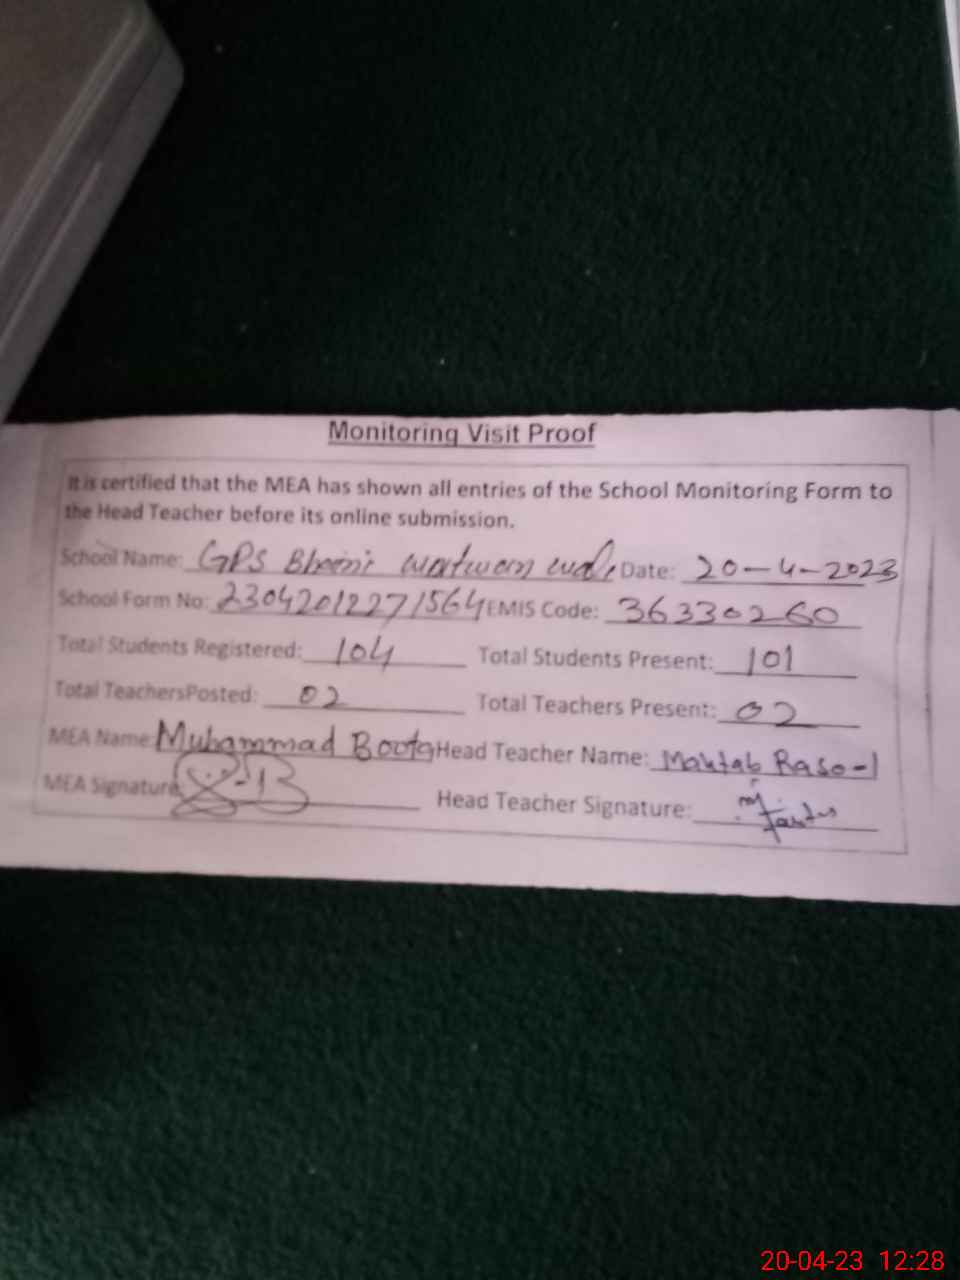 Monitoring Visit Proof
It is certified that the MEA has shown all entries of the School Monitoring Form to
the Head Teacher before its online submission.
School Name: GPS Date: 20-4-2023
School Form No: 23042012271564 EMIS Code: 36330260
Total Students Registered: 104 Total Students Present: 101
Total TeachersPosted: 02 Total Teachers Present: 02
MEA Name: Muhammad Boota Head Teacher Name: Mahtab Rasool
MEA Signature: Head Teacher Signature:
20-04-23 12:28